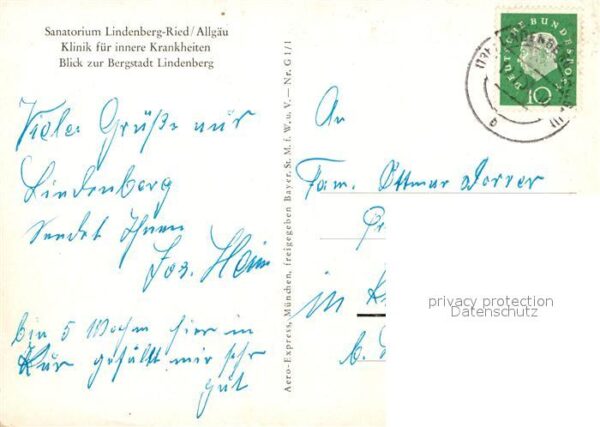 Sanatorium Lindenberg-Ried/Allgäu
Klinik für innere Krankheiten
Blick zur Bergstadt Lindenberg
Viele Grüße aus
Lindenberg
sendet Ihnen
Jos. Heim
Bin 5 Wochen hier in
Kur gefällt mir sehr
gut
Aero-Express, München, freigegeben Bayer. St. M. f. W. u. V. — Nr. G 1/1
DEUTSCHE BUNDESPOST
10
b
An
Fam. Ottmar Dorrer
in
b.
privacy protection
Datenschutz